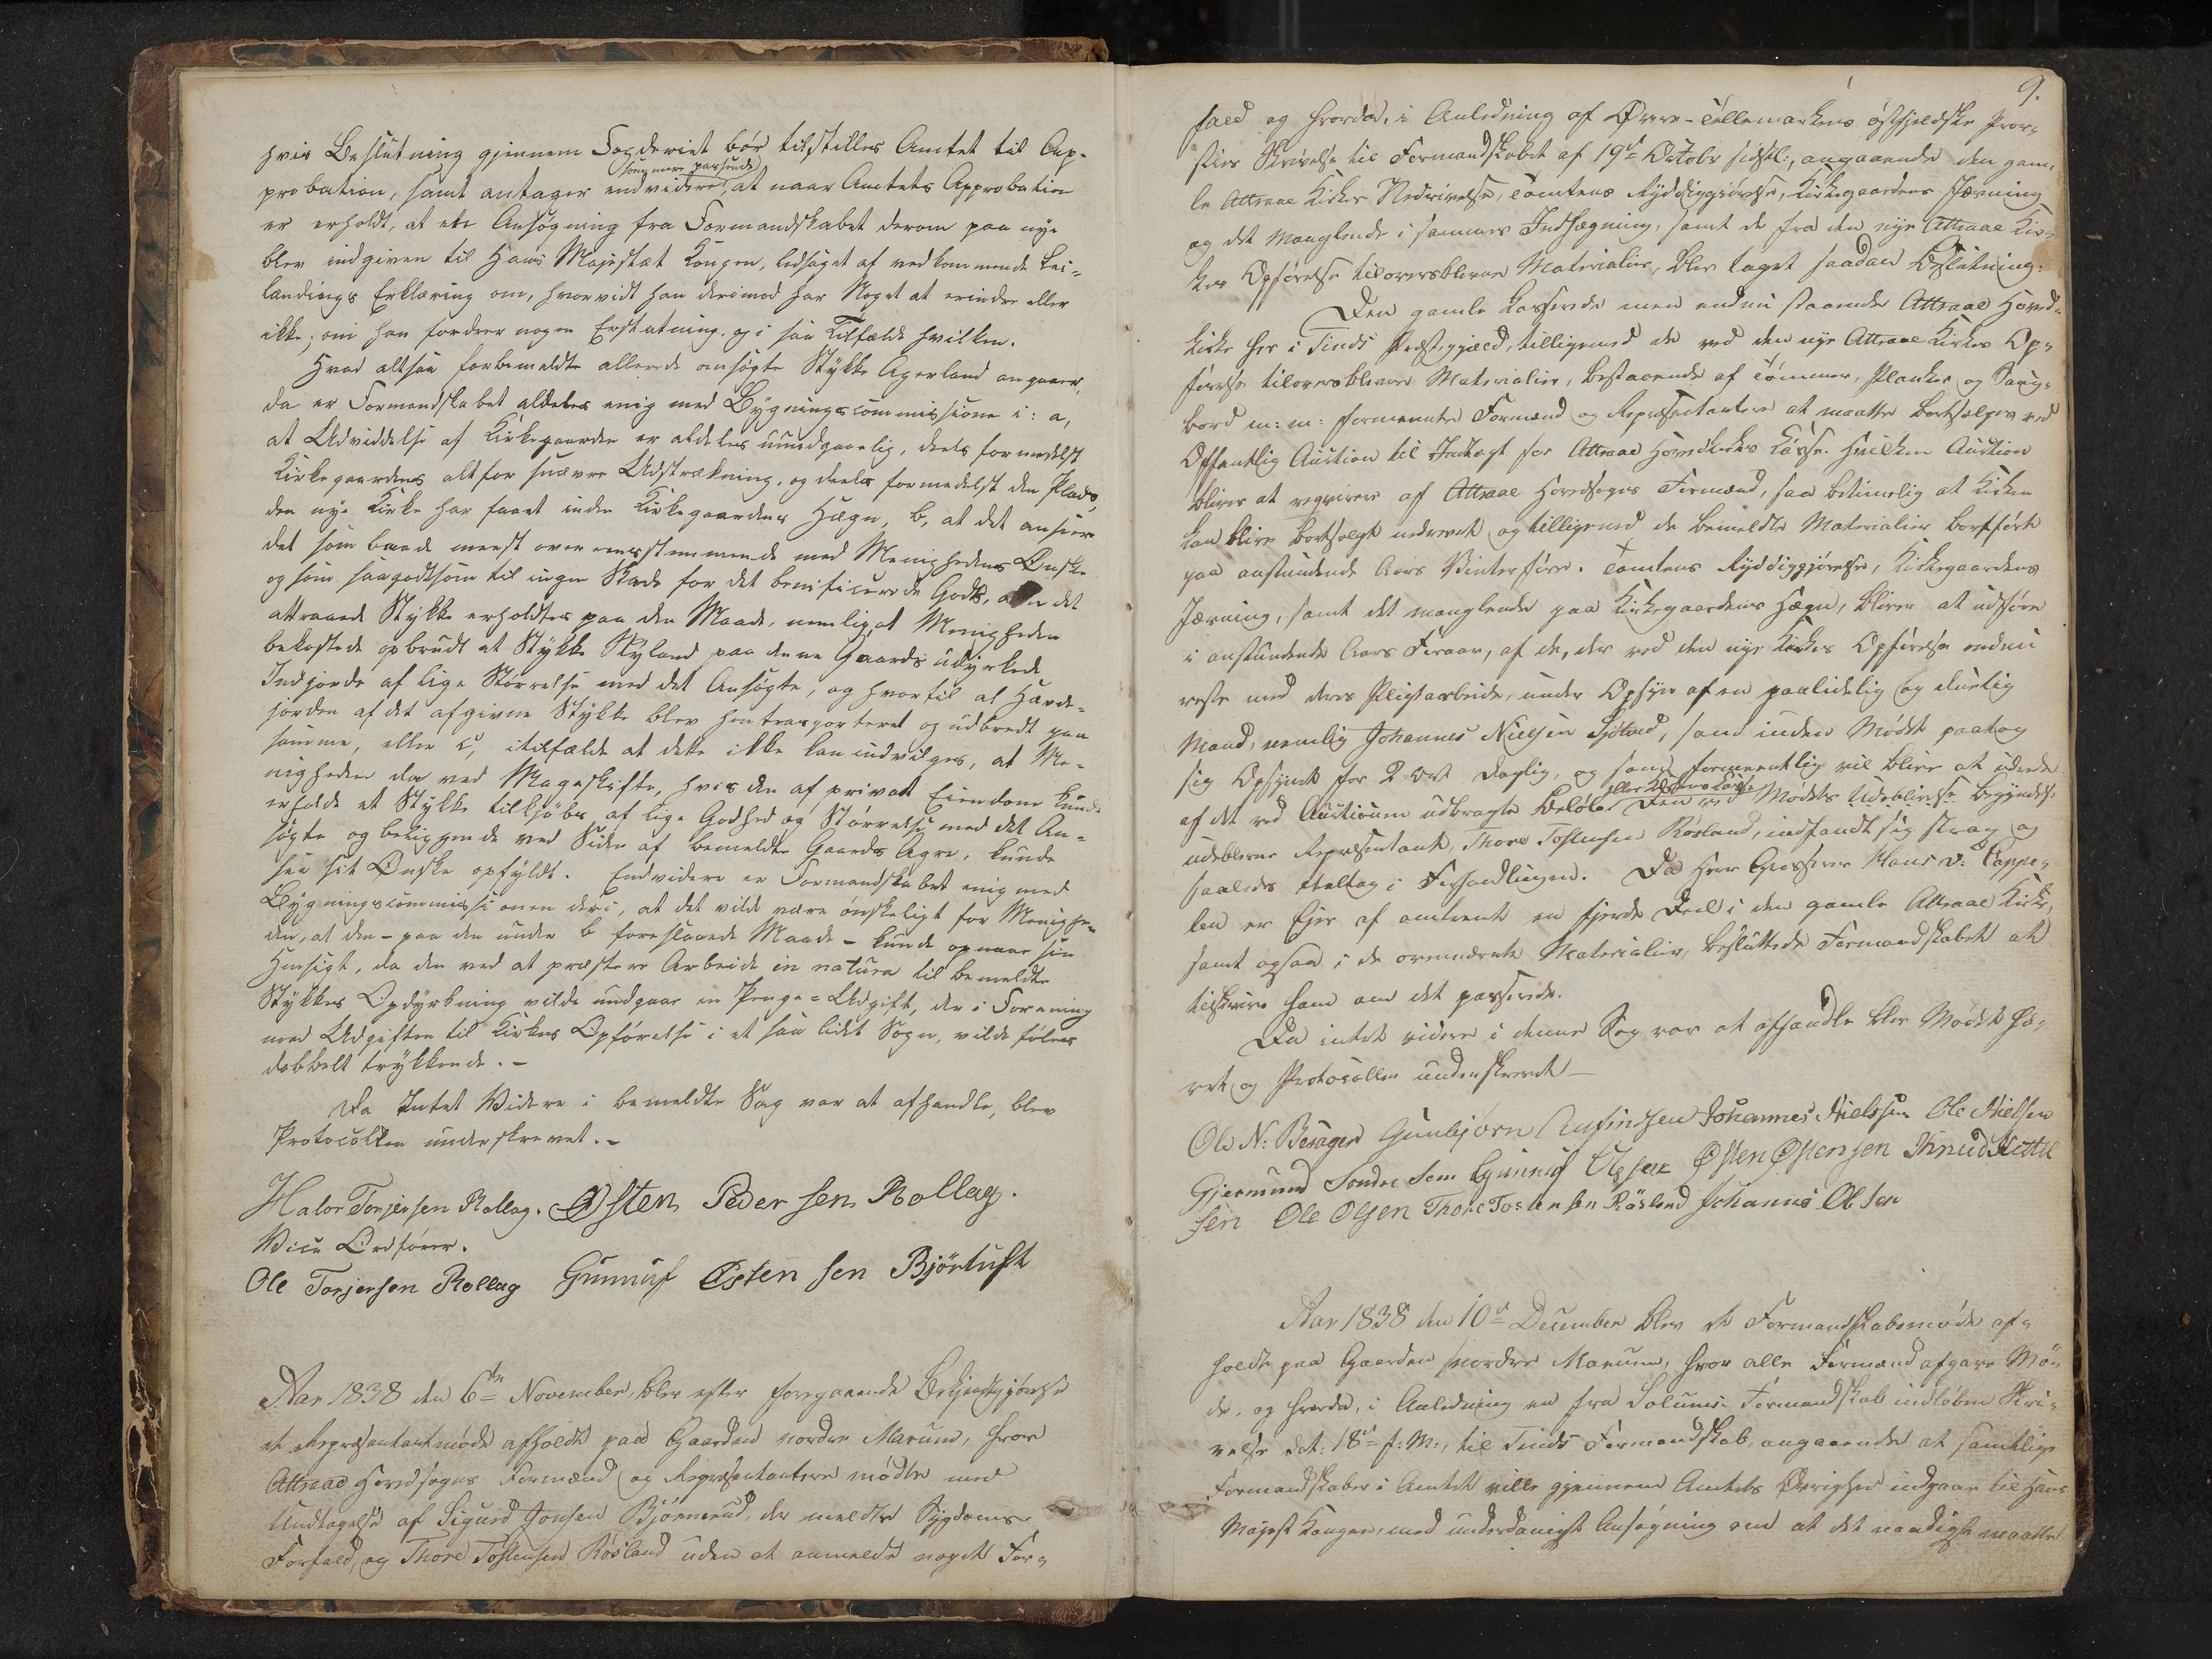 hvis Beslutning gjennem Fogderiet bør tilstilles Amtet til Ap-
som mere passende
probation, samt antager endvidere, at naar Amtets Approbation
er erholdt, at en Ansøgning fra Formandskabet derom paa nye
blev indgiven til Hans Majestæt Kongen, ledsaget af vedkommende Lei-
lændings Erklæring om, hvorvidt han derimod har Noget at erindre eller
ikke; om han fordrer nogen Erstatning, og i saa Tilfælde hvilken.
Hvad altsaa forbemeldte allerede ansøgte Stykke Agerland angaaer,
da er Formandskabet aldeles enig med Bygningscommissionen i: a,
at Udvidelse af Kirkegaarden er aldeles uundgaaelig, deels formedelst
Kirkegaardens altfor snævre Udstrækning, og deels formedelst den Plads,
den nye Kirke har faaet inden Kirkegaardens Hægn, b, at det ansees
det som baade meest overeensstemmende med Menighedens Ønske
og som saagodtsom til ingen Skade for det benificerede Gods, om det
attraaede Stykke erholdtes paa den Maade, nemlig, at Menigheden
bekostede opbrudt et Stykke Nyland paa denne Gaards udyrkede
Indjorde af lige Størrelse med det Ansøgte, og hvortil al Hævd-
jorden af det afgivne Stykke blev hentransporteret og udbredt paa
samme, eller c, itilfælde at dette ikke kan indvilges, at Me-
nigheden da ved Mageskifte, hvis den af privat Eiendom kunde
erholde et Stykke tilkjøbs af lige Godhed og Størrelse med det An-
søgte og beliggende ved Siden af bemeldte Gaards Agre, kunde
see sit Ønske opfyldt. Endvidere er Formandskabet enig med
Bygningscommissionen deri, at det vilde være ønskeligt for Menighe-
den, at den - paa den under b foreslaaede Maade - kunde opnaae sin
Hensigt, da den ved at præstere Arbeide in natura til bemeldte
Stykkes Opdyrkning vilde undgaae en Penge-Udgift, der i Forening
med Udgiften til Kirkens Opførelse i et saa lidet Sogn, vilde føles
dobbelt trykkende. -
Da Intet Videre i bemeldte Sag var at afhandle, blev
Protocollen underskrevet. -
Halvor Torjersen Rollag. Østen Pedersen Rollag.
Vice Ordfører.
Ole Torjersen Rollag Gunnuf Østensen Björtuft
Aar 1838 den 6te November, blev efter foregaaende Bekjendtgjørelse
et Repræsentantmøde afholdt paa Gaarden nordre Marum, hvor
Attraae Hovedsogns Formænd og Repræsentantere mødte med
Undtagelse af Sigurd Jonsen Bjørnerud, der meldte Sygdoms
Forfald, og Thore Tostensen Rösland uden at anmelde noget For-
9.
fald og hvorda, i Anledning af Øvre-Tellemarkens østfjeldske Prov-
sties Skrivelse til Formandskabet af 19de Octobr sidstl:, angaaende den gam-
le Attraae Kirkes Nedrivelse, Tomtens Ryddiggjørelse, Kirkegaardens Jævning
og det Manglende i sammes Indhægning, samt de fra den nye Attraae Kir-
kes Opførelse tiloversblevne Materialier, blev taget saadan Beslutning:
Den gamle kasserede men endnu staaende Attraae Hoved-
kirke her i Tinds Præstegjæld, tilligemed de ved den nye Attraae Kirkes Op-
førelse tiloversblevne Materialier, bestaaende af Tømmer, Planker og Saug-
bord m: m: formeente Formænd og Repræsentantere at maatte bortsælges ved
Offentlig Auction til Indtægt for Attraae Hovedkirkes Casse. Hvilken Auction
bliver at reqvirere af Attraae Hovedsogns Formænd, saa betimelig at Kirken
kan blive bortsolgt nedrevet og tilligemed de bemeldte Materialier bortført
paa anstundende Aars Vinterføre. Tomtens Ryddiggjørelse, Kirkegaardens
Jævning, samt det manglende paa Kirkegaardens Hægn, bliver at udføre
i anstundende Aars Foraar, af de, der ved den nye Kirkes Opførelse endnu
reste med deres Pligtarbeide, under Opsyn af en paalidelig og duelig
Mand, nemlig Johannes Nielsen Sjøtved, som inden Mødet paatog
sig Opsynet for 2 Ort daglig, og som formeentlig vil blive at udrede
eller Kirkens Casse
af det ved Auctionen udbragte Beløb. Den ved Mødets Udeblivelse begyndelse
udeblevne Repræsentant, Thore Tostensen Rösland, indfandt sig strax og
saaledes deeltog i Forhandlingen. Da Herr Grosserer Klaus v: Cappe-
len er Ejer af omtrent en fjerde Deel i den gamle Attraae Kirke,
samt ogsaa i de ovennævnte Materialier, besluttede Formandskabet at
tilskrive ham om det passerede.
Da intet videre i denne Sag var at afhandle blev Mødet hæ-
vet og Protocollen underskrevet -
Ole N: Bernaas Gunbjörn Johannes Nielssen Ole Nielsen
Gjermund Sondresen Gunnuf Olsen Østen Østensen Knud Kittil
sen Ole Olsen Thore Tostensen Rösland Johannes Olsen
Aar 1838 den 10de December blev et Formandskabsmøde af-
holdt paa Gaarden nordre Marum, hvor alle Formænd afgave Mø-
de, og hvorda, i Anledning en fra Solums Formandskab indløben Skri-
velse dat: 18de f: M:, til Tinds Formandskab, angaaende at samtlige
Formandskaber i Amtet ville gjennem Amtets Øvrighed indgaae til Hans
Majest Kongen, med underdanigst Ansøgning om at det naadigst maatte